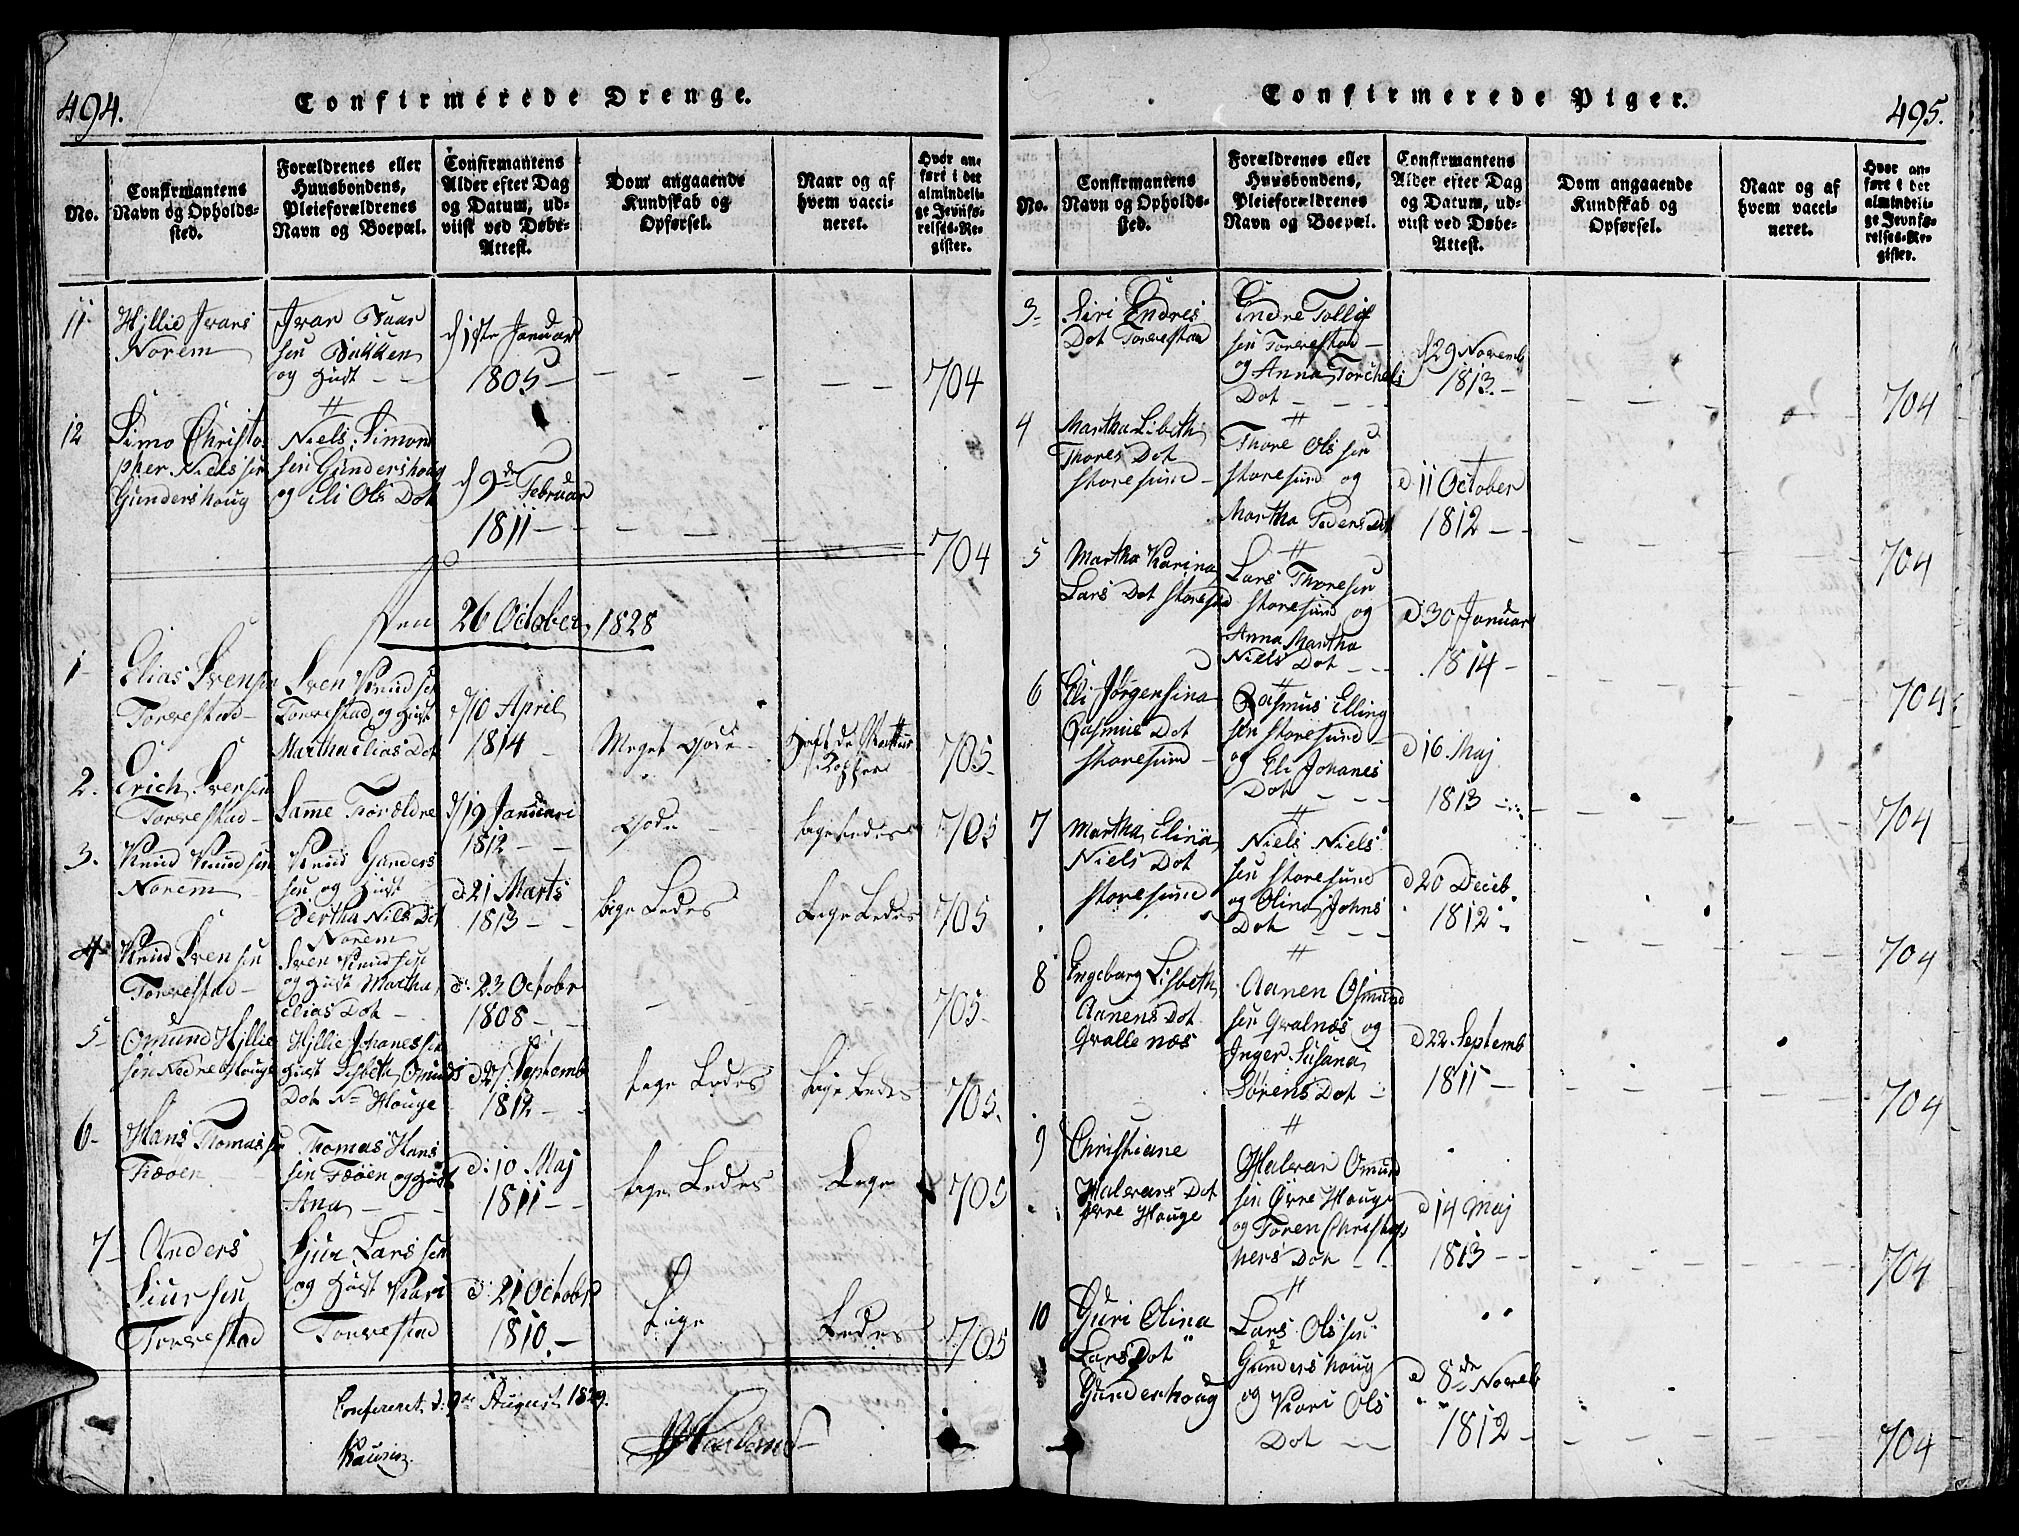 494.
Confirmerede Drenge.
No.
Confirmantens
Navn og Opholds-
sted.
Forældrenes eller
Huusbondens,
Pleieforældrenes
Navn og Boepæl.
Confirmantens
Alder efter Dag
og Datum, ud-
viist ved Døbe-
Attest.
Dom angaaende
Kundskab og
Opførsel.
Naar og af
hvem vacci-
neret.
Hvor an-
ført i det
almindeli-
ge Jevnfø-
relses-Re-
gister.
11
Hjllie Ivars
Norem
Ivar
sen Bakken
og Hust - -
d 1ste Januar
1805 -
704
12
Simo Christo
pher Nielssen
Gundershoug
Niels Simon
sen Gundershoug
og Eli Ols Dot
d 9de Februar
1811 -
704
Den 26 October 1828
1-
Elias Svensen
Torvestad-
Sven Knudsen
Torvestad og Hust
Martha Elias Dot
d 10 April
1814 -
Meget Gode-
Hafde Naturlige
Kopper
705-
2.
Erich Svensen
Torvestad-
Samme Forældre
d 19 Januari
1812 - -
Gode -
Ligeledes
705
3.
Knud Knudsen
Norem
Knud Gunders
sen og Hust
Bertha Niels Dot
Norem
d 21 Marts
1813 - -
Lige Ledes
Lige Ledes
705
4-
Knud Svensen
Torvestad-
Sven Knudsen
og Hust Martha
Elias Dot -
d: 23 Octobr
1808 - -
705-
5-
Omund Hjllie
sen Nedre Houge
Hjllie Johanessen
Hust Lisbeth Omunds
Dot N= Houge
d 27 Septemb
1812 - -
Lige Ledes
Lige Ledes
705.
6-
Hans Thomassen
Fæøen
Thomas Hans
sen Fæøen og Hust
Ana - - -
d: 10 Maj
1811 - -
Lige Ledes
Lige
705
7-
Anders
Siursen
Torvestad
Sjur Larssen
og Hust Kari
Torvestad
d: 21 Octobr
1810.-
Lige
Ledes
705
Confereret d: 9de August 1829.
495.
Confirmerede Piger.
No.
Confirmantens
Navn og Opholds-
sted.
Forældrenes eller
Huusbondens,
Pleieforældrenes
Navn og Boepæl.
Confirmantens
Alder efter Dag
og Datum, ud-
viist ved Døbe-
Attest.
Dom angaaende
Kundskab og
Opførsel.
Naar og af
hvem vacci-
neret.
Hvor an-
ført i det
almindeli-
ge Jevnfø-
relses-Re-
gister.
3-
Siri Endres
Dot Torvestad
Endre Tollef
sen Torvestad -
og Anna Torchels
Dot - - -
d 29 Novemb
1813.-
704
4
Martha Libeth
Thores Dot
Storesund -
Thore Olssen
Storesund og
Martha Peders Dot
d 11 October
1812 - -
704
5
Martha Karina
Lars Dot Storesund
Lars Thoresen
Storesund og
Anna Martha
Niels Dot - -
d 30 Januar
1814 -
704
6
Eli Jørgensina
Rasmus Dot
Storesund -
Rasmus Elling
sen Storesund -
og Eli Johanes
Dot - - -
d 16 Maj
1813 -
704
7
Martha Elina
Niels Dot
Storesund
Niels Niels
sen Storesund
og Olina Johns
Dot - - -
d 20 Decib
1812 -
704
8
Engeborg Lisbeth
Aanens Dot
Qvallenæs
Aanen Osmund
sen Qvalnæs og
Inger Susana
Sørens Dot -
d 22 Septemb
1811 -
704
9
Christiane
Halvars Dot
øvre Houge
Halvar Omund
sen Øvre Houge
og Toren Christop
hers Dot - -
d 14 Maj
1813 - -
704
10
Guri Olina
Lars Dot
Gunderhoug
Lars Olssen
Gundershoug
og Kari Ols
Dot - -
d 8de Novemb
1812 -
704